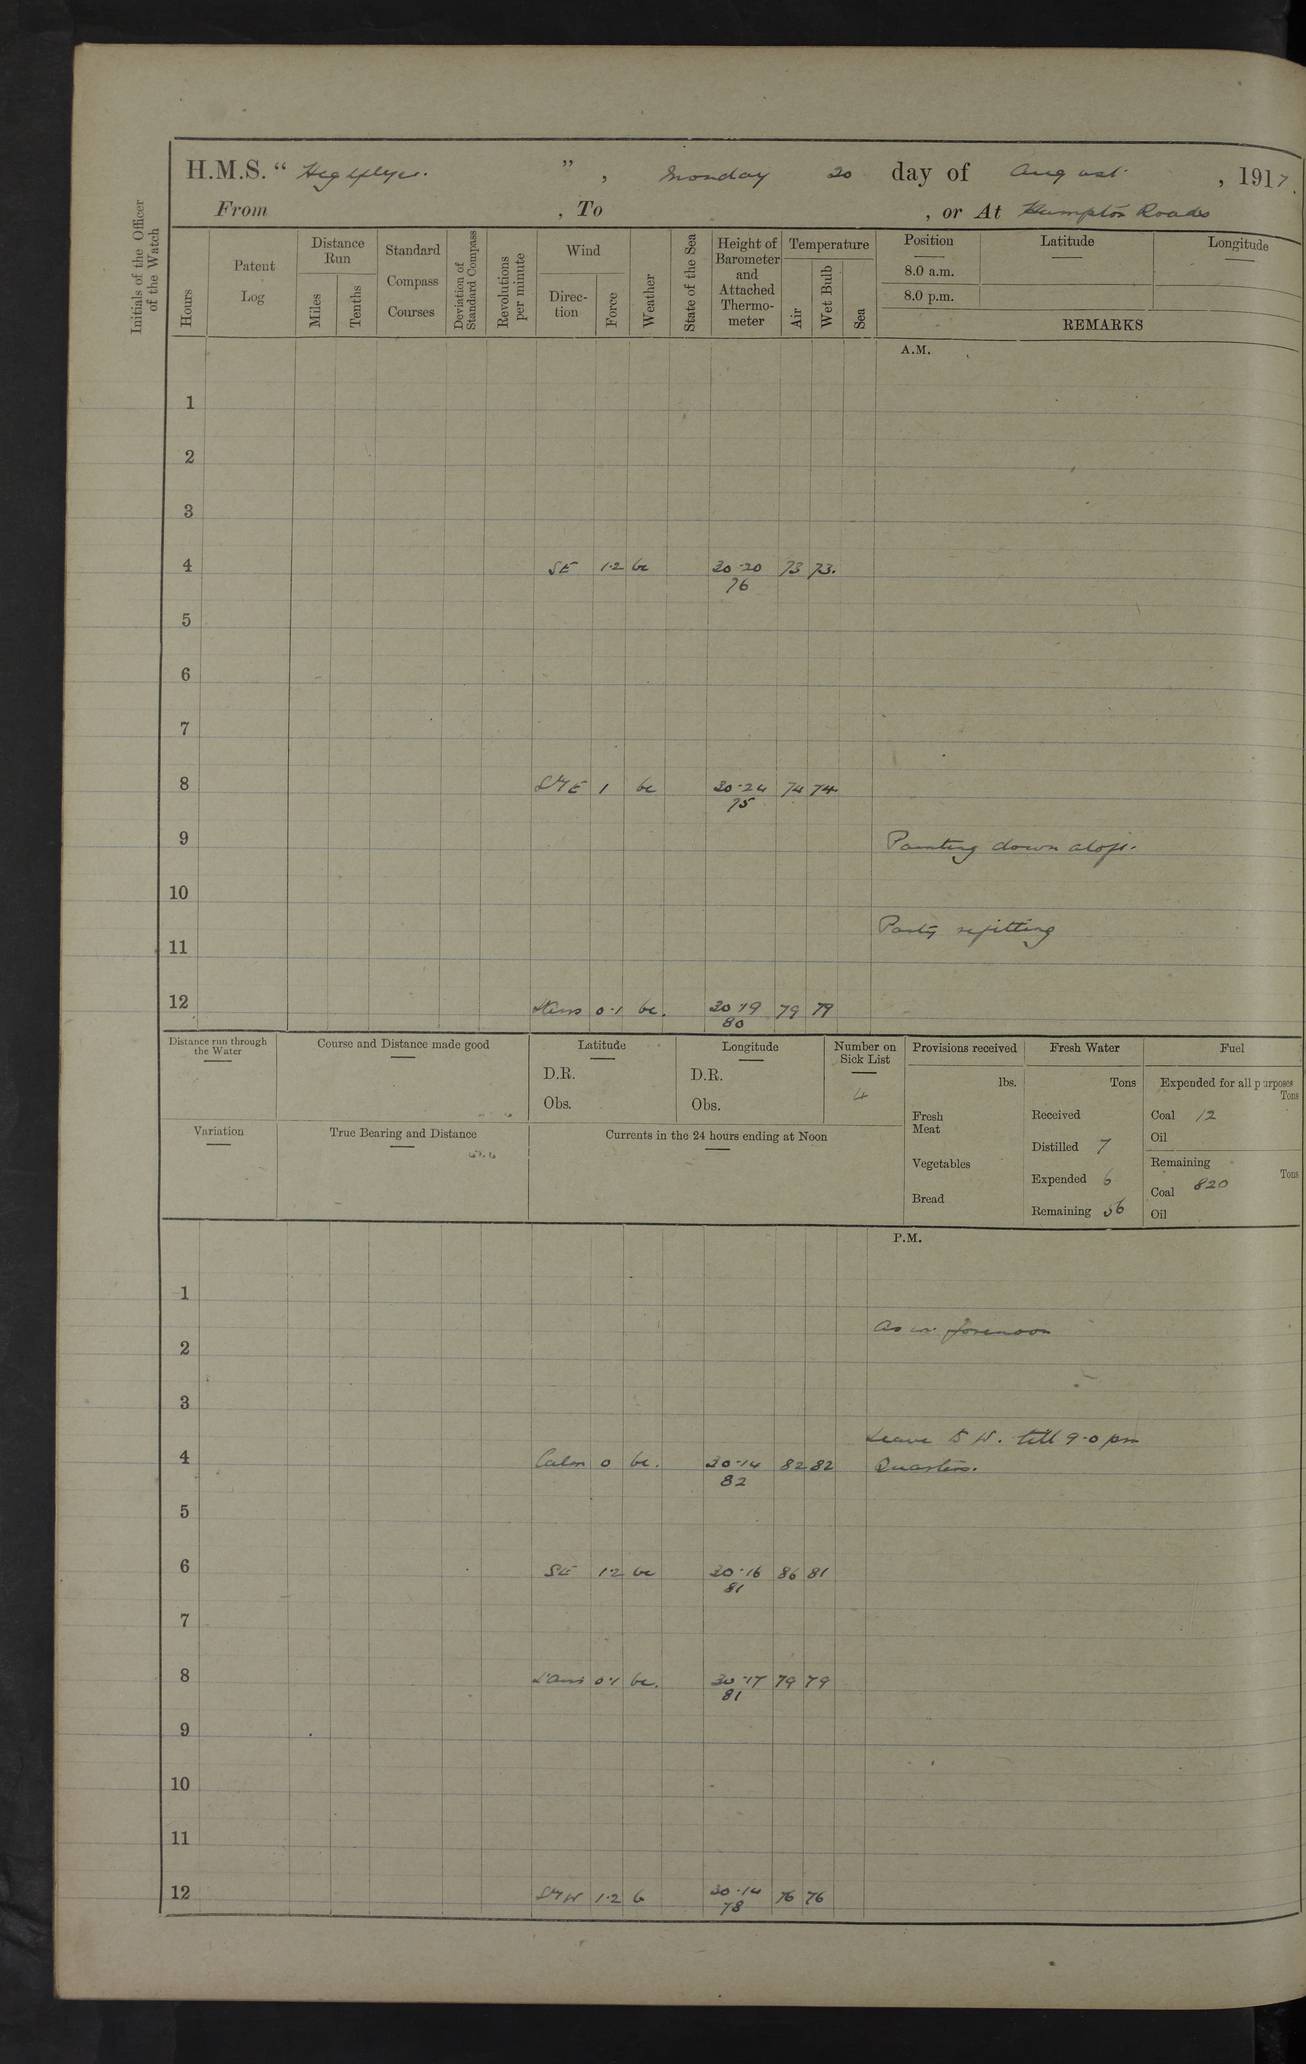 H.M.S. “ Highflyer. ” , Monday 20 day of August , 1917.
From , To , or At Hampton Roads
Initials of the Officer of the Watch
Hours
Patent Log
Distance Run
Miles
Tenths
Standard Compass Courses
Deviation of Standard Compass
Revolutions per minute
Wind
Direc-tion
Force
Weather
State of the Sea
Height of Barometer and Attached Thermo-meter
Temperature
Air
Wet Bulb
Sea
Position
8.0 a.m.
8.0 p.m.
Latitude
Longitude
REMARKS
A.M.
1
2
3
4 SE 1·2 bc 30·20 73 73.
76
5
6
7
8 SWE 1 bc 30·24 74 74
75
9 Painting down aloft.
10
11 Party refitting
12 0·1 bc. 30·19 79 79
80
Distance run through the Water
Course and Distance made good
Latitude
D.R.
Obs.
Longitude
D.R.
Obs.
Number on Sick List
4
Provisions received
lbs.
Fresh Meat
Vegetables
Bread
Fresh Water
Tons
Received
Distilled 7
Expended 6
Remaining 56
Fuel
Expended for all purposes
Tons
Coal 12
Oil
Remaining
Tons
Coal 820
Oil
Variation
True Bearing and Distance
Currents in the 24 hours ending at Noon
P.M.
1
As in forenoon
2
3
Leave to W. till 9·0 pm
4 Calm 0 bc. 30·14 82 82 Quarters.
82
5
6 SE 1·2 bc 30·16 86 81
81
7
8 0·1 bc. 30·17 79 79
81
9
10
11
12 1·2 b 30·14 76 76
78